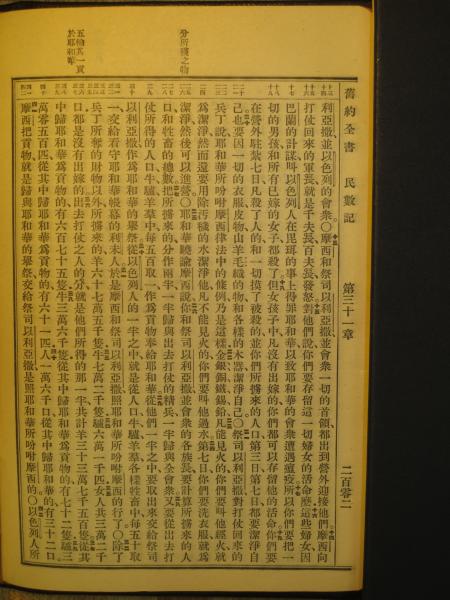 舊約全書 民數記 第三十一章 二百零二
利亞撒並以色列的會衆○摩西和祭司以利亞撒並會衆一切的首領都出到營外迎接他們摩西向
打仗回來的軍長就是千夫長百夫長發怒對他們說你們要存留這一切婦女的活命麽這些婦女因
巴蘭的計謀叫以色列人在毘珥的事上得罪耶和華以致耶和華的會衆遭遇瘟疫所以你們要把一
切的男孩和所有已嫁的女子都殺了但女孩子中凡沒有出嫁的你們都可以存留他的活命你們要
在營外駐紮七日凡殺了人的和一切摸了被殺的並你們所擄來的人口第三日第七日都要潔淨自
己也要因一切的衣服皮物山羊毛織的物和各樣的木器潔淨自己○祭司以利亞撒對打仗回來的
兵丁說耶和華所吩咐摩西律法中的條例乃是這樣金銀銅鐵錫鉛凡能見火的你們要叫他經火就
爲潔淨然而還要用除汚穢的水潔淨他凡不能見火的你們要叫他過水第七日你們要洗衣服就爲
潔淨然後可以進營○耶和華曉諭摩西說你和祭司以利亞撒並會衆的各族長要計算所擄來的人
口和牲畜的總數把所擄來的分作兩半一半歸與出去打仗的精兵一半歸與全會衆又要從出去打
仗所得的人口牛驢羊羣中每五百取一作爲貢物奉給耶和華從他們一半之中要取出來交給祭司
以利亞撒作爲耶和華的舉祭從以色列人的一半之中就是從人口牛驢羊羣各樣牲畜中每五十取
一交給看守耶和華帳幕的利未人於是摩西和祭司以利亞撒照耶和華所吩咐摩西的行了○除了
兵丁所奪的財物以外所擄來的羊六十七萬五千隻牛七萬二千隻驢六萬一千匹女人共三萬二千
口都是沒有出嫁的出去打仗之人的分就是他們所得的那一半共計羊三十三萬七千五百隻從其
中歸耶和華爲貢物的有六百七十五隻牛三萬六千隻從其中歸耶和華爲貢物的有七十二隻驢三
萬零五百匹從其中歸耶和華爲貢物的有六十一匹人一萬六千口從其中歸耶和華的有三十二口
摩西把貢物就是歸與耶和華的舉祭交給祭司以利亞撒是照耶和華所吩咐摩西的○以色列人所
分所獲之物
五輸其一貢
於耶和華